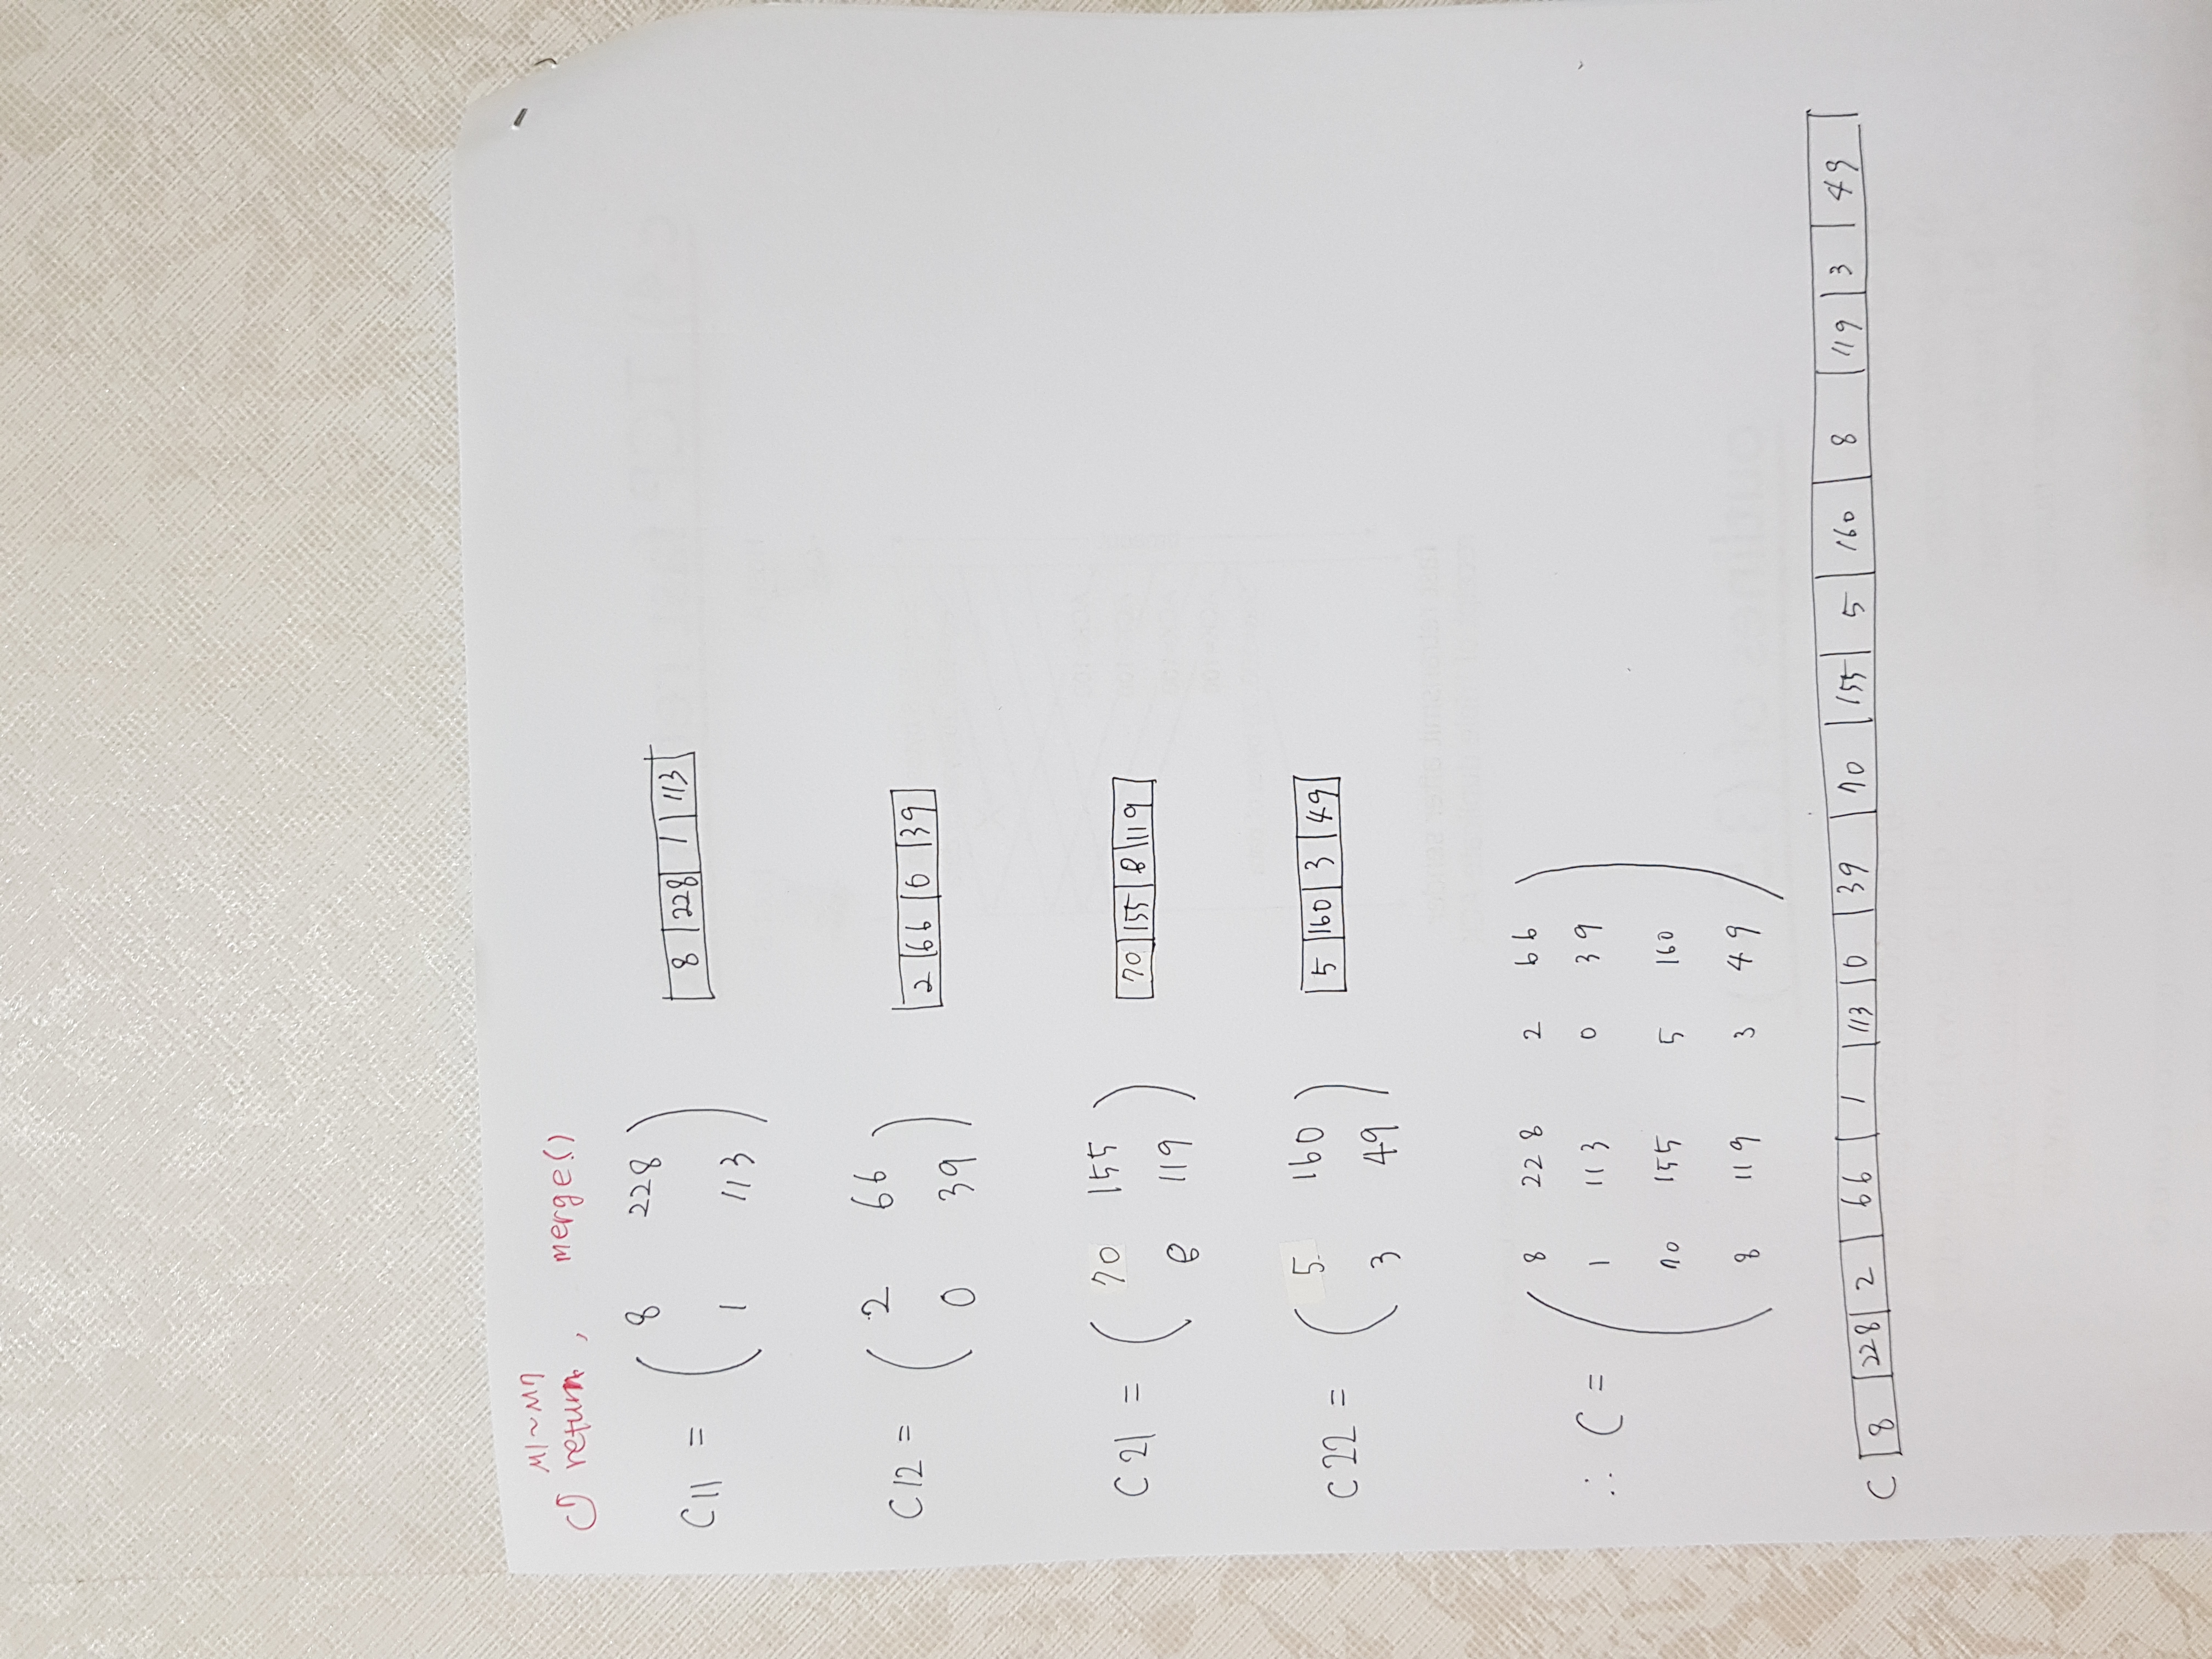 M1~M7
return, merge()
C11 = ( 8 228 8 228 1 113
1 113 )
C12 = ( 2 66 2 66 0 39
0 39 )
C21 = ( 70 155 70 155 8 119
8 119 )
C22 = ( 5 160 5 160 3 49
3 49 )
∴ C = ( 8 228 2 66
1 113 0 39
70 155 5 160
8 119 3 49 )
C 8 228 2 66 1 113 0 39 70 155 5 160 8 119 3 49